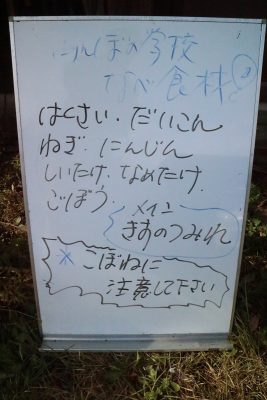 にんぼの学校
なべ食材
はくさい・だいこん
ねぎ・にんじん
しいたけ・なめたけ・
ごぼう
メイン
きすのつみれ
※こぼねに
注意して下さい